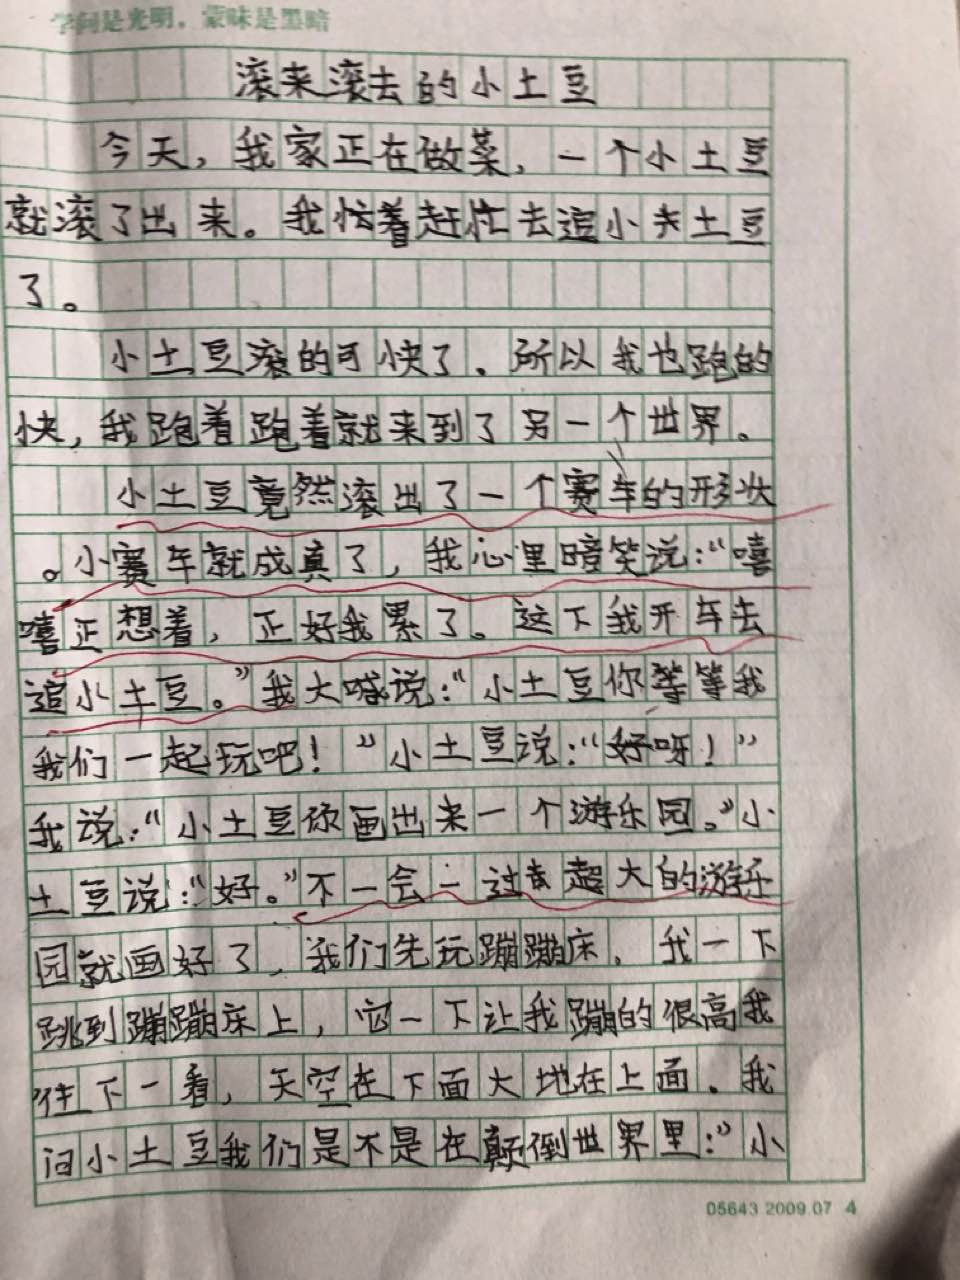 学问是光明，蒙昧是黑暗
滚来滚去的小土豆
今天，我家正在做菜，一个小土豆
就滚了出来。我忙着赶忙去追小夫土豆
了。
小土豆滚的可快了。所以我也跑的
快，我跑着跑着就来到了另一个世界。
小土豆竟然滚出了一个赛车的形状
。小赛车就成真了，我心里暗笑说：“嘻
嘻正想着，正好我累了。这下我开车去
追小土豆。”我大喊说：“小土豆你等等我
我们一起玩吧！”小土豆说：“好呀！”
我说：“小土豆你画出来一个游乐园。”小
土豆说：“好。”不一会一过去超大的游乐
园就画好了，我们先玩蹦蹦床，我一下
跳到蹦蹦床上，它一下让我蹦的很高我
往下一看，天空在下面大地在上面。我
问小土豆我们是不是在颠倒世界里：”小
05643 2009.07 4